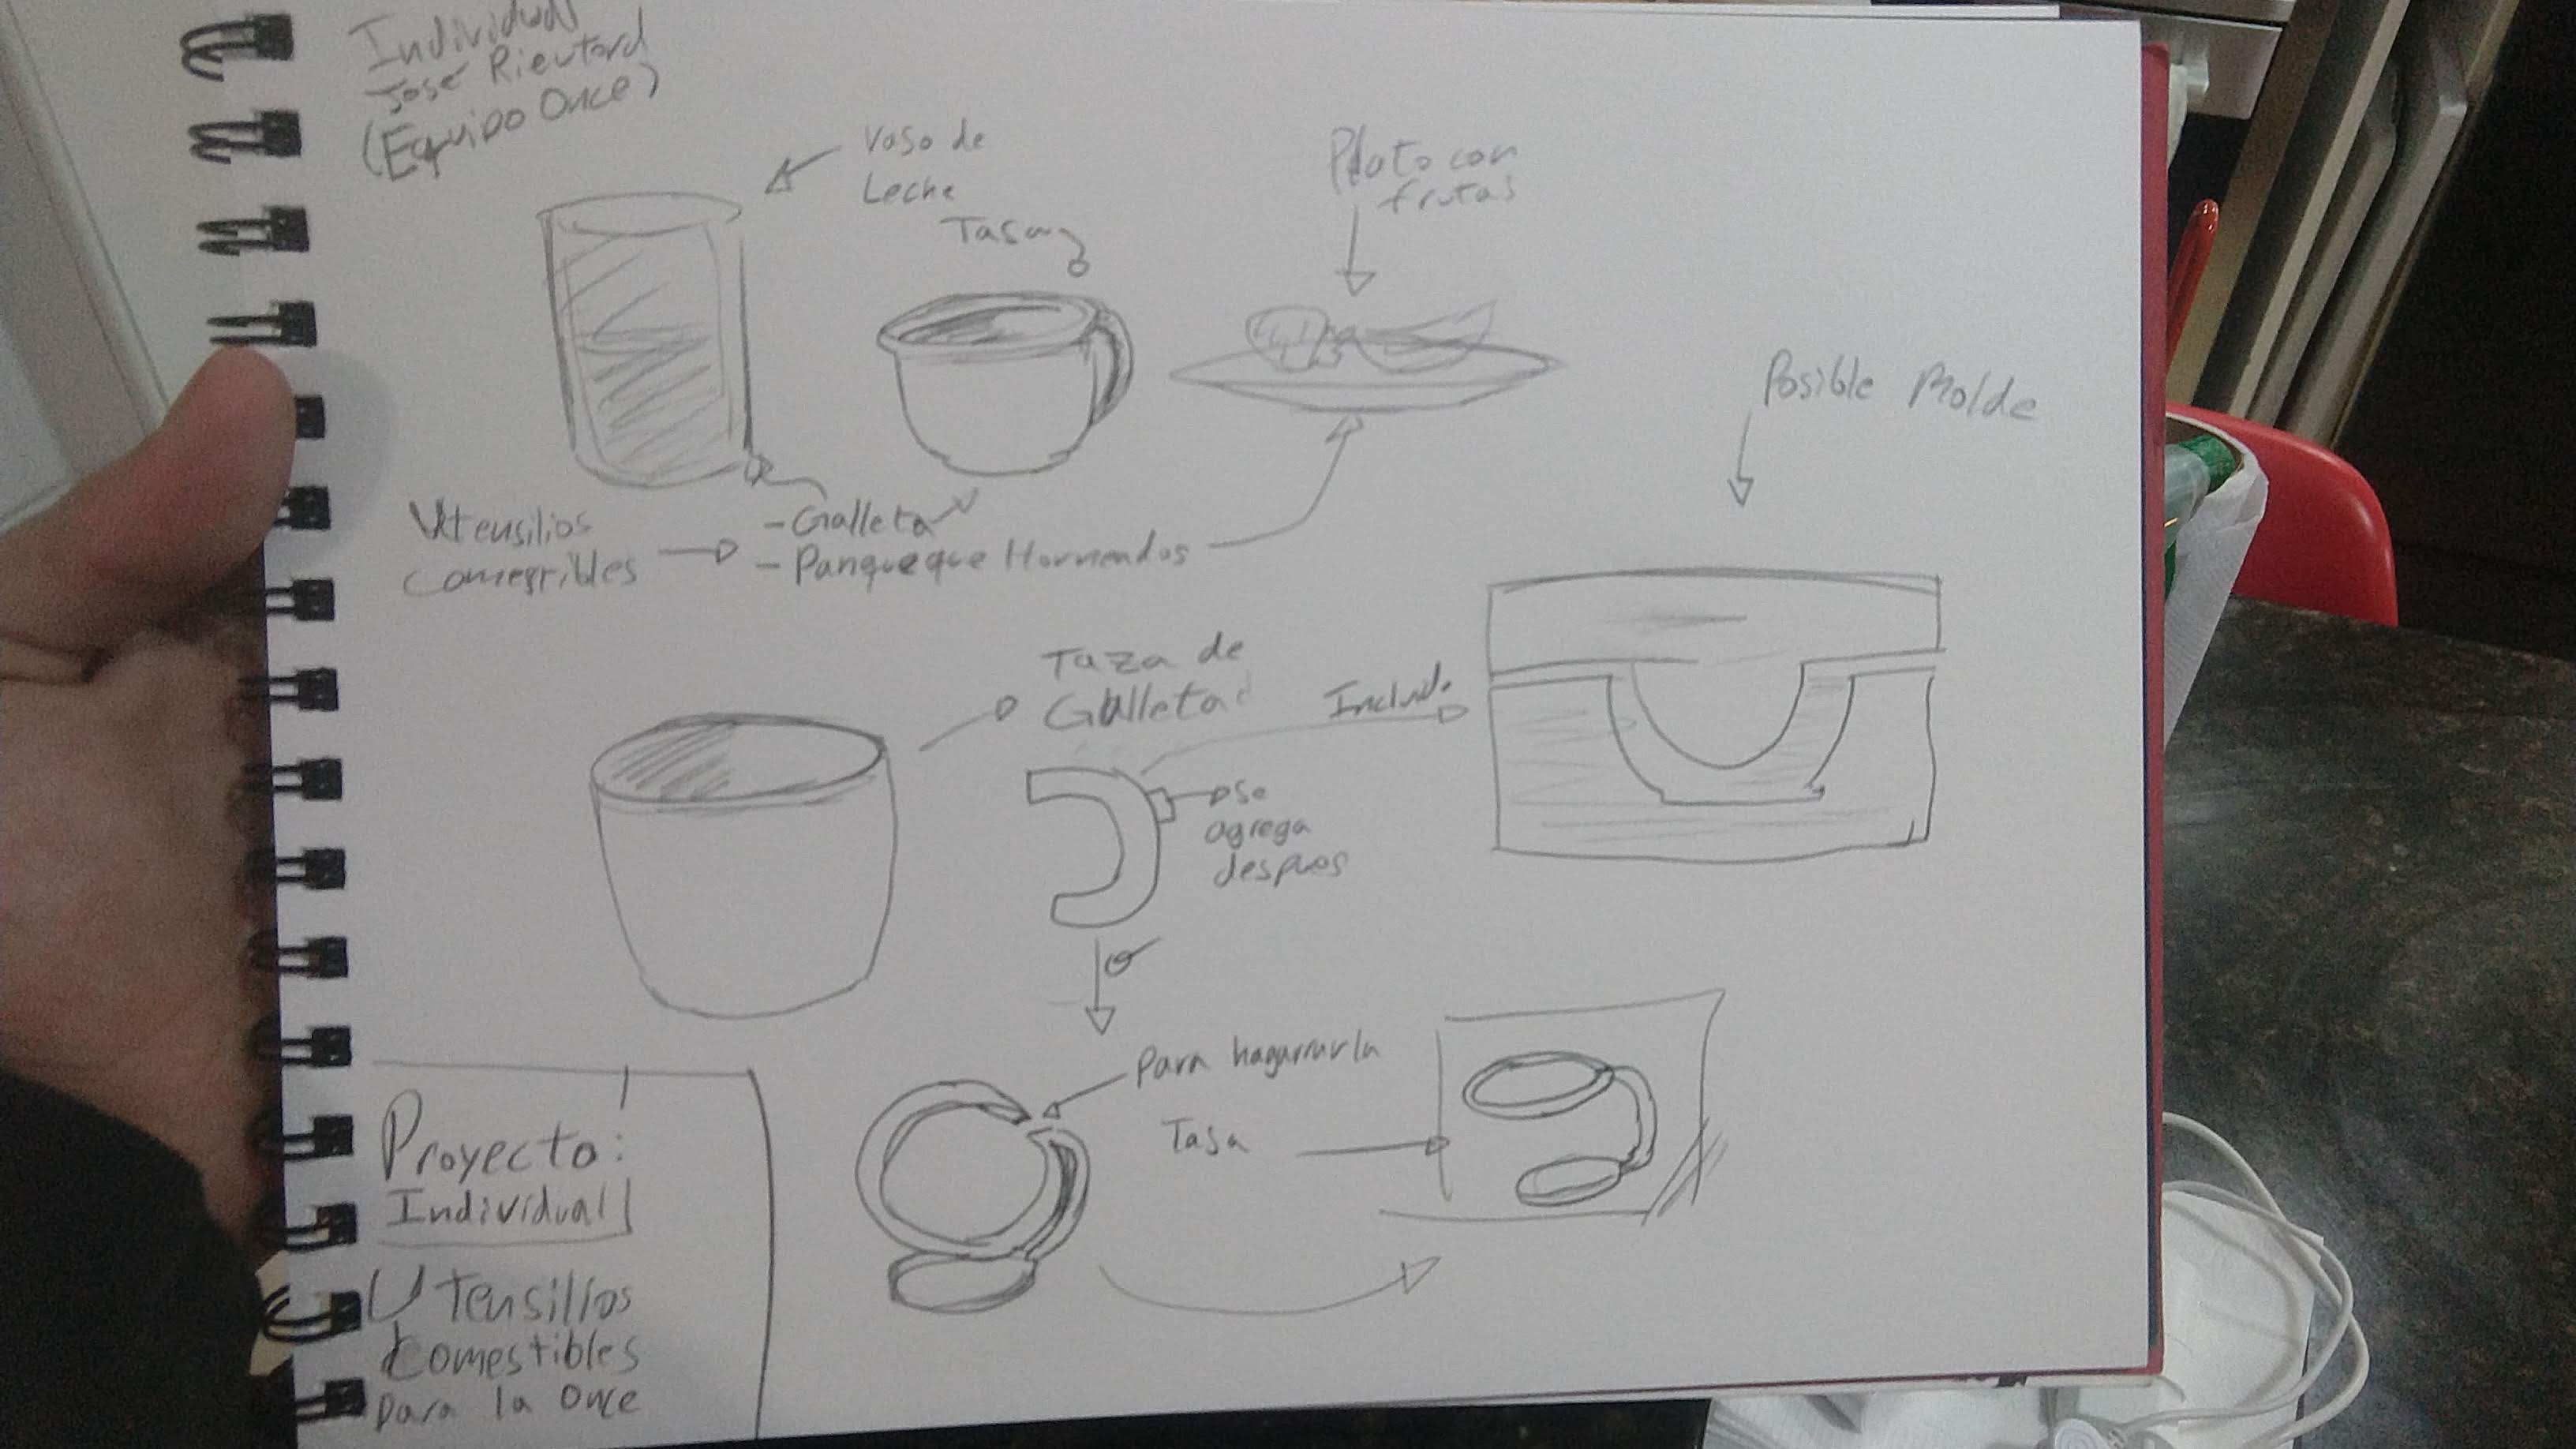 Individual
José Rieutord
(Equipo Once)
Vaso de
Leche
Tasa
Plato con
frutas
Posible Molde
Utensilios
- Galleta
- Panqueque
Taza de
Galleta
Se
agrega
despues
Para hagarrarla
Tasa
Proyecto:
Individual
Utensilios
Comestibles
Para la Once